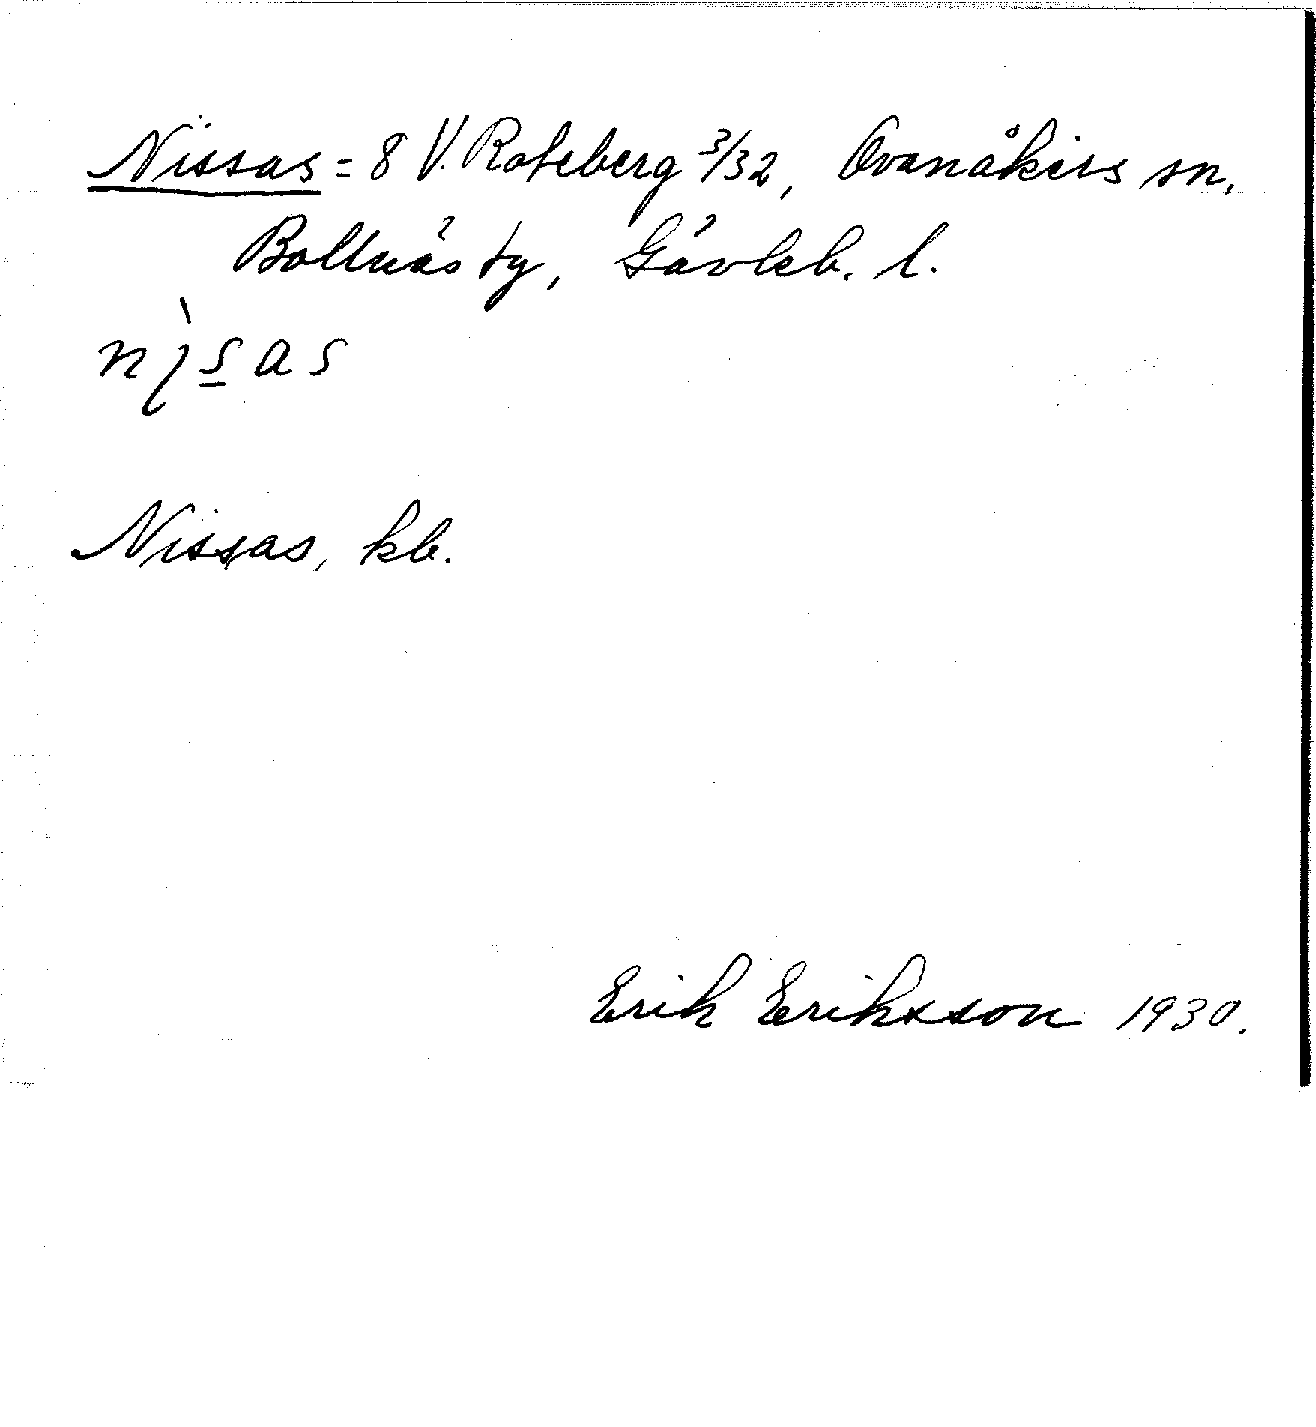 Nissas = 8 V. Roteberg 3/32, Ovanåkers sn,
Bollnäs tg, Gävleb. l.
nìsas
Nissas, kb.
Erik Eriksson 1930.